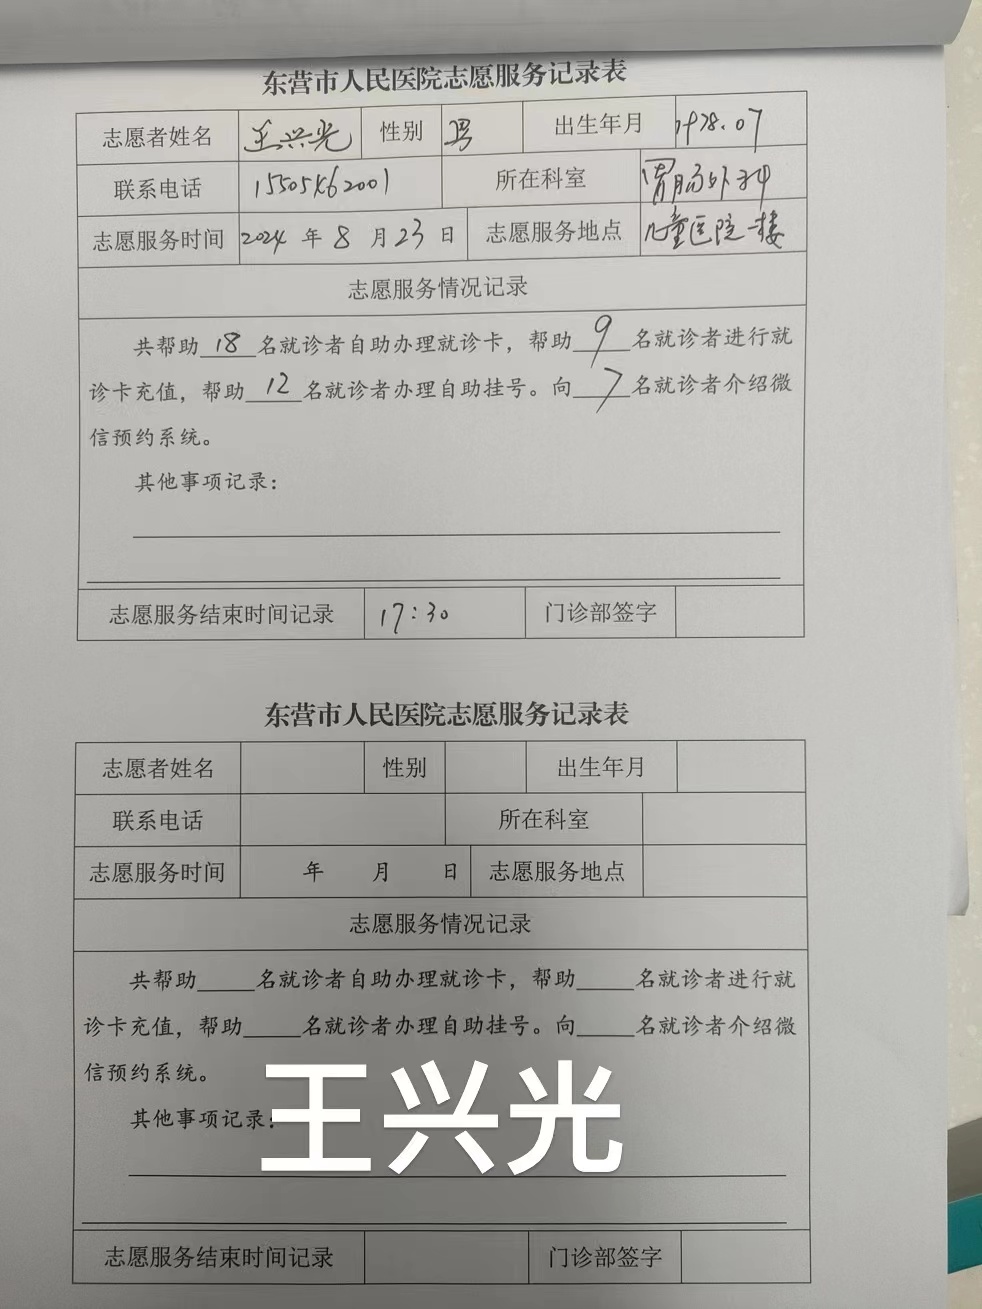 东营市人民医院志愿服务记录表
志愿者姓名 王兴光 性别 男 出生年月 1978.07
联系电话 15505462001 所在科室 胃肠外科
志愿服务时间 2024 年 8 月 23 日 志愿服务地点 儿童医院一楼
志愿服务情况记录
共帮助 18 名就诊者自助办理就诊卡，帮助 9 名就诊者进行就
诊卡充值，帮助 12 名就诊者办理自助挂号。向 7 名就诊者介绍微
信预约系统。
其他事项记录：
志愿服务结束时间记录 17:30 门诊部签字
东营市人民医院志愿服务记录表
志愿者姓名 性别 出生年月
联系电话 所在科室
志愿服务时间 年 月 日 志愿服务地点
志愿服务情况记录
共帮助_____名就诊者自助办理就诊卡，帮助_____名就诊者进行就
诊卡充值，帮助_____名就诊者办理自助挂号。向_____名就诊者介绍微
信预约系统。
其他事项记录：
王兴光
志愿服务结束时间记录 门诊部签字